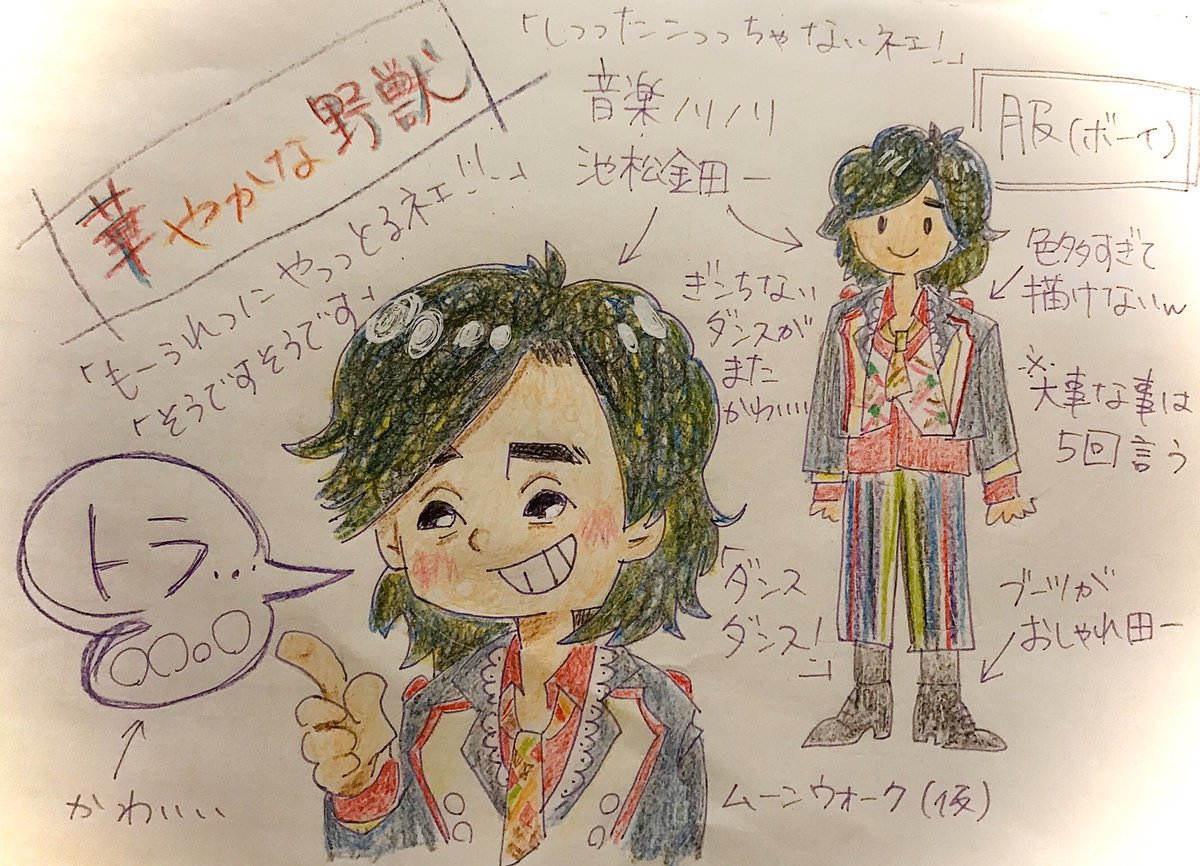 「しっったこっっちゃないネェ!」
華やかな野獣
音楽ノリノリ
池松金田一
服(ボーイ)
「もーうれつにやっっとるネェ!!」
「そうですそうです」
ぎこちない
ダンスが
また
かわいい
色多すぎて
描けないw
※大事な事は
5回言う
トラ…
○○。○
かわいい
「ダンス
ダンス!」
ブーツが
おしゃれ田一
ムーンウォーク(仮)